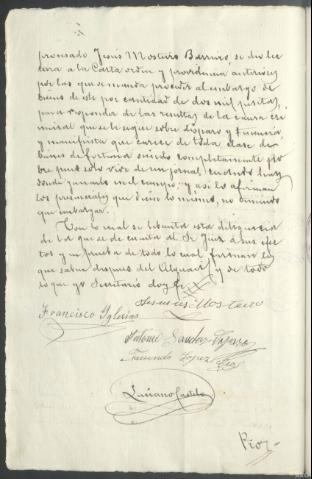 procesado Jesús Mosteiro Barreiro, se dio lec
tura a la Carta orden y providencia anteriores
por las que se manda proceder al embargo de
bienes de este por cantidad de dos mil pesetas,
para responder de las resultas de la causa cri
minal que se le sigue sobre disparo y
y manifiesta que carece de toda clase de
bienes de fortuna siendo completamente po
bre pues solo vive de un jornal cuando hay
donde ganarlo en el campo; y así lo afirman
los presenciales que dicen lo mismo, no habiendo
que embargar.
Con lo cual se levanta esta diligencia
de la que se da cuenta al Sr Juez a sus efec
tos y en prueba de todo lo cual firman los
que saben despues del Alguacil y de todo
lo que yo Secretario doy fe
Francisco Yglesias Jesus Mosteiro
Antonio Sanchez
Facundo Lopez
Luciano Castelo